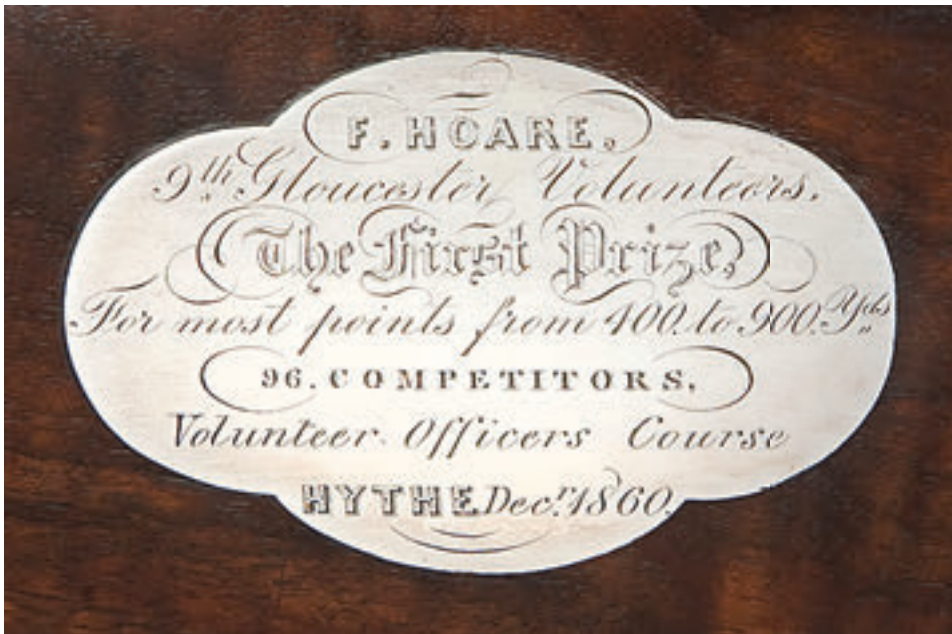 F. HOARE.
9th Gloucester Volunteers.
The First Prize,
For most points from 400. to 900. Yds
96. COMPETITORS.
Volunteer Officers Course
HYTHE Decr. 1860.